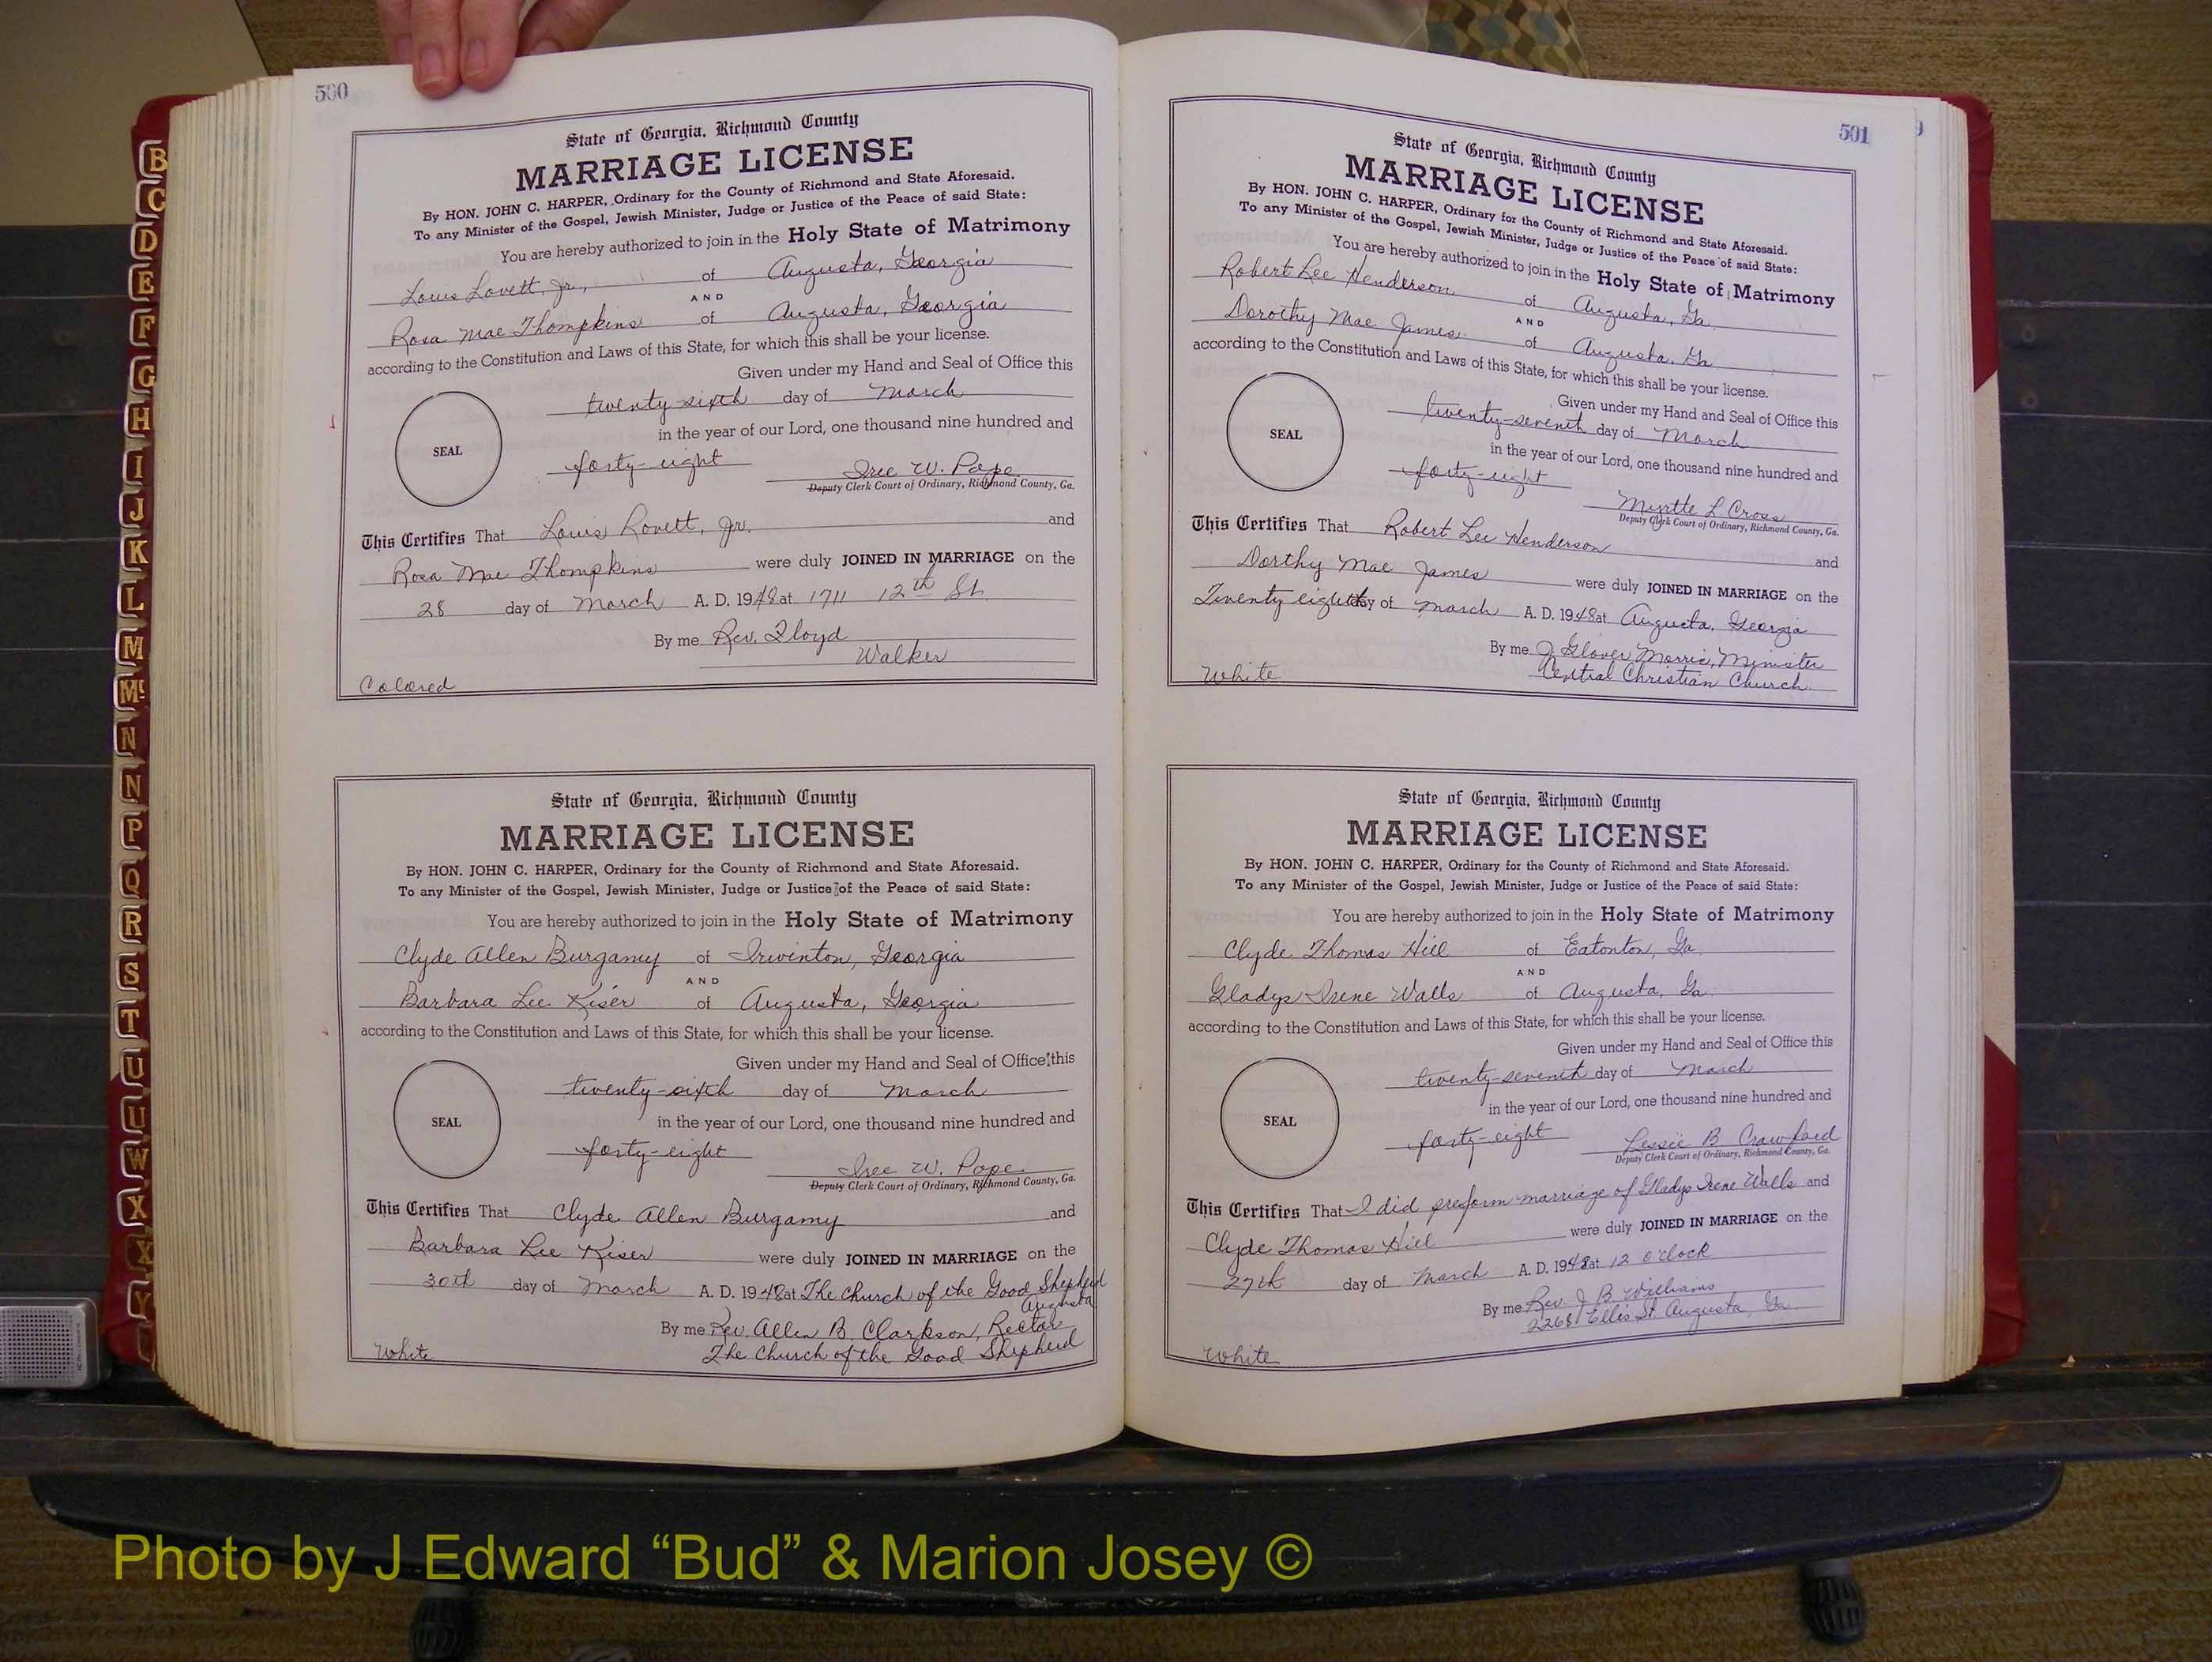 500
State of Georgia, Richmond County
MARRIAGE LICENSE
By HON. JOHN C. HARPER, Ordinary for the County of Richmond and State Aforesaid.
To any Minister of the Gospel, Jewish Minister, Judge or Justice of the Peace of said State:
You are hereby authorized to join in the Holy State of Matrimony
Louis Lovett, Jr., of Augusta, Georgia
AND
Rosa Mae Thompkins of Augusta, Georgia
according to the Constitution and Laws of this State, for which this shall be your license.
Given under my Hand and Seal of Office this
twenty-sixth day of March
in the year of our Lord, one thousand nine hundred and
SEAL
forty-eight Iree W. Pope
Deputy Clerk Court of Ordinary, Richmond County, Ga.
This Certifies That Louis Lovett, Jr. and
Rosa Mae Thompkins were duly JOINED IN MARRIAGE on the
28 day of March A. D. 1948 at 1711 12th St.
By me Rev. Floyd
Walker
Colored
State of Georgia, Richmond County
MARRIAGE LICENSE
By HON. JOHN C. HARPER, Ordinary for the County of Richmond and State Aforesaid.
To any Minister of the Gospel, Jewish Minister, Judge or Justice of the Peace of said State:
You are hereby authorized to join in the Holy State of Matrimony
Clyde Allen Burgamy of Irwinton, Georgia
AND
Barbara Lee Kiser of Augusta, Georgia
according to the Constitution and Laws of this State, for which this shall be your license.
Given under my Hand and Seal of Office this
twenty-sixth day of March
SEAL
in the year of our Lord, one thousand nine hundred and
forty-eight Iree W. Pope
Deputy Clerk Court of Ordinary, Richmond County, Ga.
This Certifies That Clyde Allen Burgamy and
Barbara Lee Kiser were duly JOINED IN MARRIAGE on the
30th day of March A. D. 1948 at The Church of the Good Shepherd
Augusta
By me Rev. Allen B. Clarkson, Rector
The Church of the Good Shepherd
White
501
State of Georgia, Richmond County
MARRIAGE LICENSE
By HON. JOHN C. HARPER, Ordinary for the County of Richmond and State Aforesaid.
To any Minister of the Gospel, Jewish Minister, Judge or Justice of the Peace of said State:
You are hereby authorized to join in the Holy State of Matrimony
Robert Lee Henderson of Augusta, Ga.
AND
Dorothy Mae James of Augusta, Ga
according to the Constitution and Laws of this State, for which this shall be your license.
Given under my Hand and Seal of Office this
twenty-seventh day of March
SEAL
in the year of our Lord, one thousand nine hundred and
forty-eight Myrtle L Cross
Deputy Clerk Court of Ordinary, Richmond County, Ga.
This Certifies That Robert Lee Henderson and
Dorthy Mae James were duly JOINED IN MARRIAGE on the
Twenty eighth day of March A. D. 1948 at Augusta, Georgia
By me J. Glover Morris, Minister
Central Christian Church
White
State of Georgia, Richmond County
MARRIAGE LICENSE
By HON. JOHN C. HARPER, Ordinary for the County of Richmond and State Aforesaid.
To any Minister of the Gospel, Jewish Minister, Judge or Justice of the Peace of said State:
You are hereby authorized to join in the Holy State of Matrimony
Clyde Thomas Hill of Eatonton, Ga.
AND
Gladys Irene Walls of Augusta, Ga.
according to the Constitution and Laws of this State, for which this shall be your license.
Given under my Hand and Seal of Office this
twenty-seventh day of March
in the year of our Lord, one thousand nine hundred and
SEAL
forty-eight Lessie B Crawford
Deputy Clerk Court of Ordinary, Richmond County, Ga.
This Certifies That I did preform marriage of Gladys Irene Walls and
Clyde Thomas Hill were duly JOINED IN MARRIAGE on the
27th day of March A. D. 1948 at 12 o'clock
By me Rev. J B Williams
Ellis St. Augusta, Ga.
White
B
C
D
E
F
G
H
I
J
K
L
M
Mc
N
N
P
Q
R
S
T
U
U
W
X
X
Y
Photo by J Edward “Bud” & Marion Josey ©